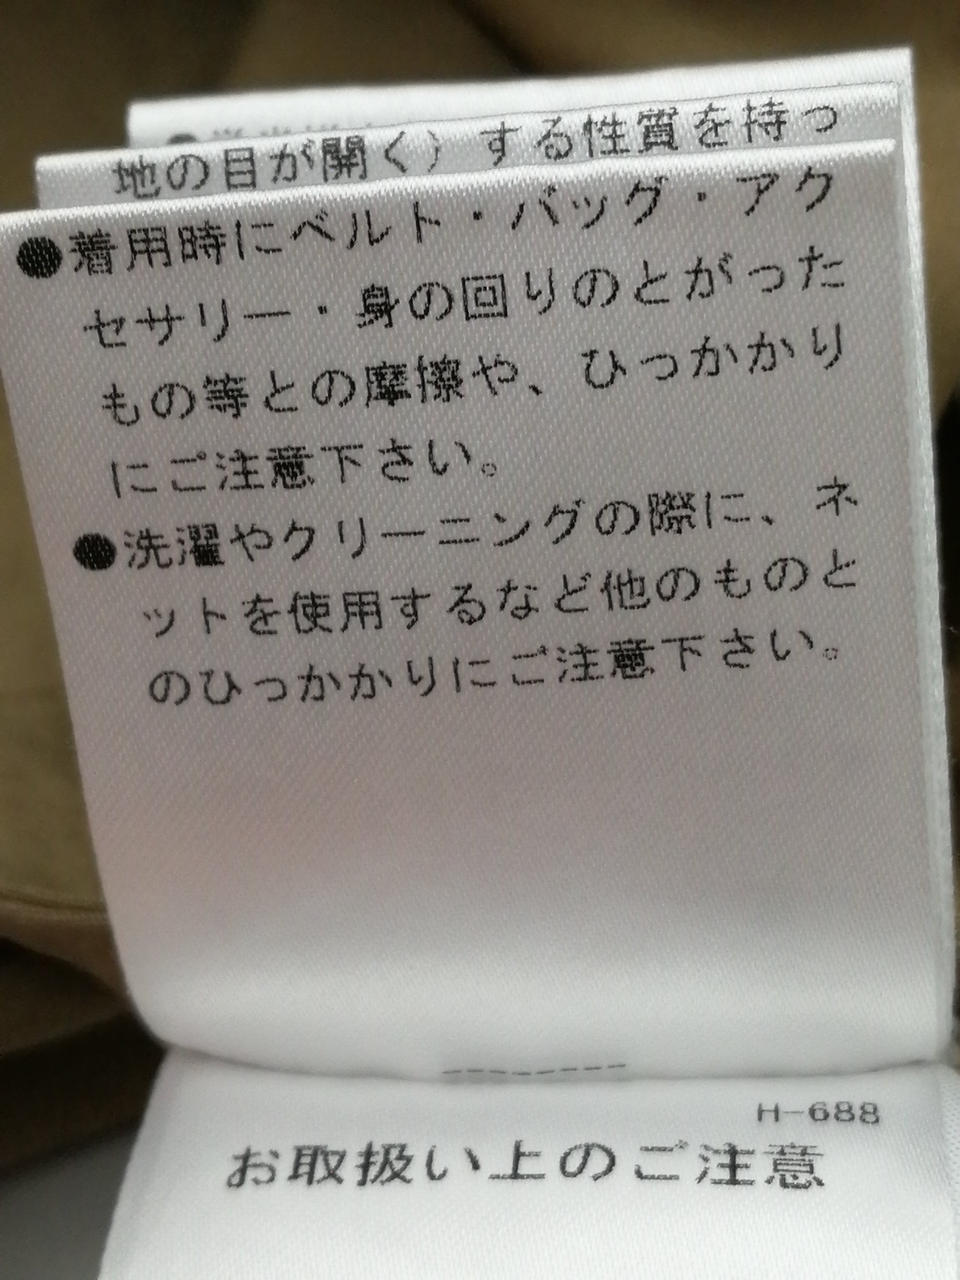 地の目が開く）する性質を持っ
●着用時にベルト・バッグ・アク
セサリー・身の回りのとがった
もの等との摩擦や、ひっかかり
にご注意下さい。
●洗濯やクリーニングの際に、ネ
ットを使用するなど他のものと
のひっかかりにご注意下さい。
H-688
お取扱い上のご注意